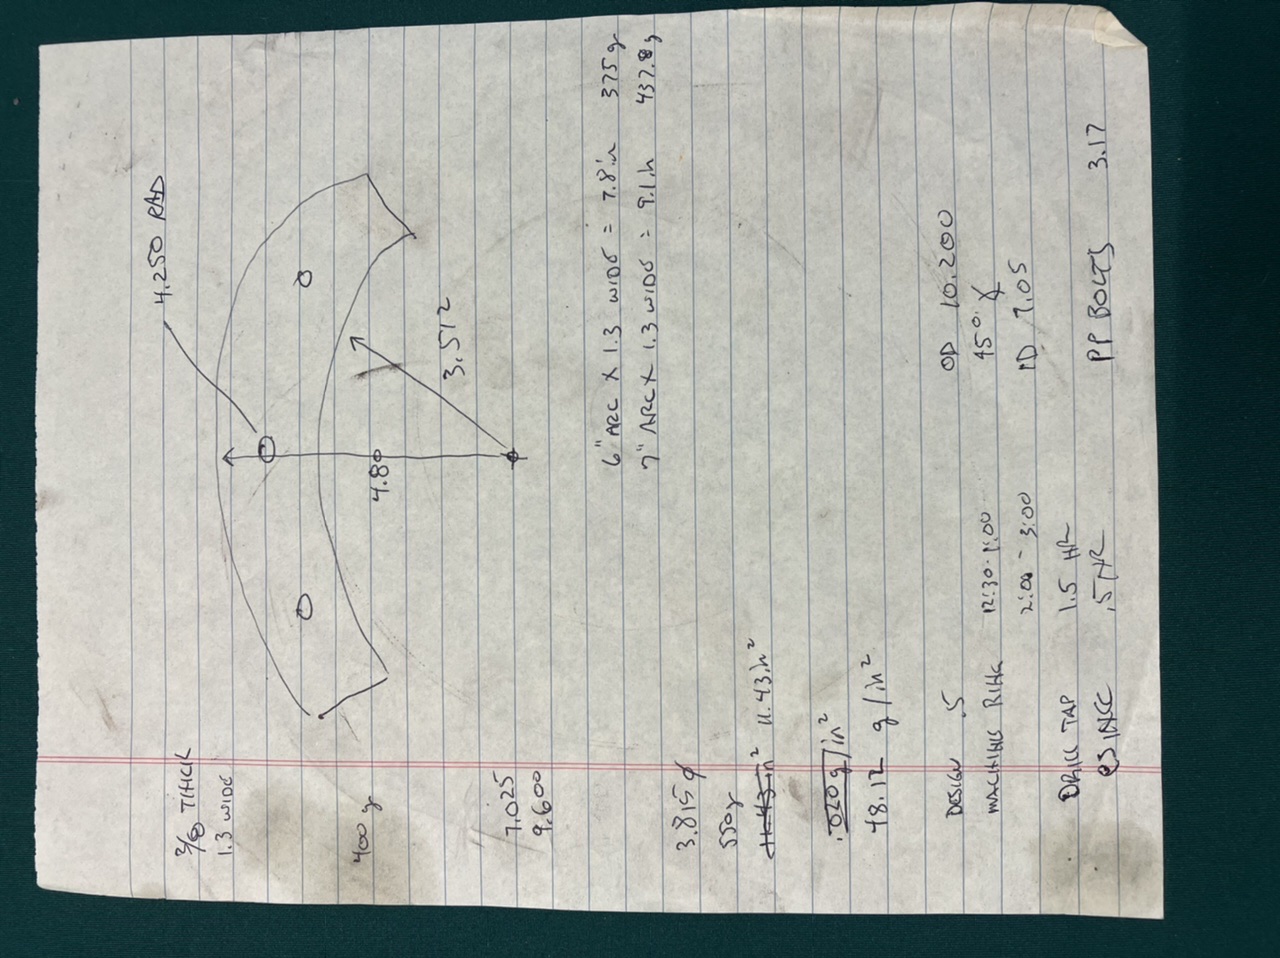 3/8 THICK
1.3 WIDE
4.250 RAD
400 g
4.80
3.512
7.025
9.600
6" ARC X 1.3 WIDE = 7.8 in 375 g
7" ARC X 1.3 WIDE = 9.1 in 437.8 g
3.815 φ
550 g
11.43 in² 11.43 in²
.020 g/in²
48.12 g/in²
DESIGN .5
OD 10.200
MACHINE RING 12:30-1:00
45°
2:00 - 3:00
ID 7.05
DRILL TAP 1.5 HR
CSINK .5 HR
PP BOLTS 3.17